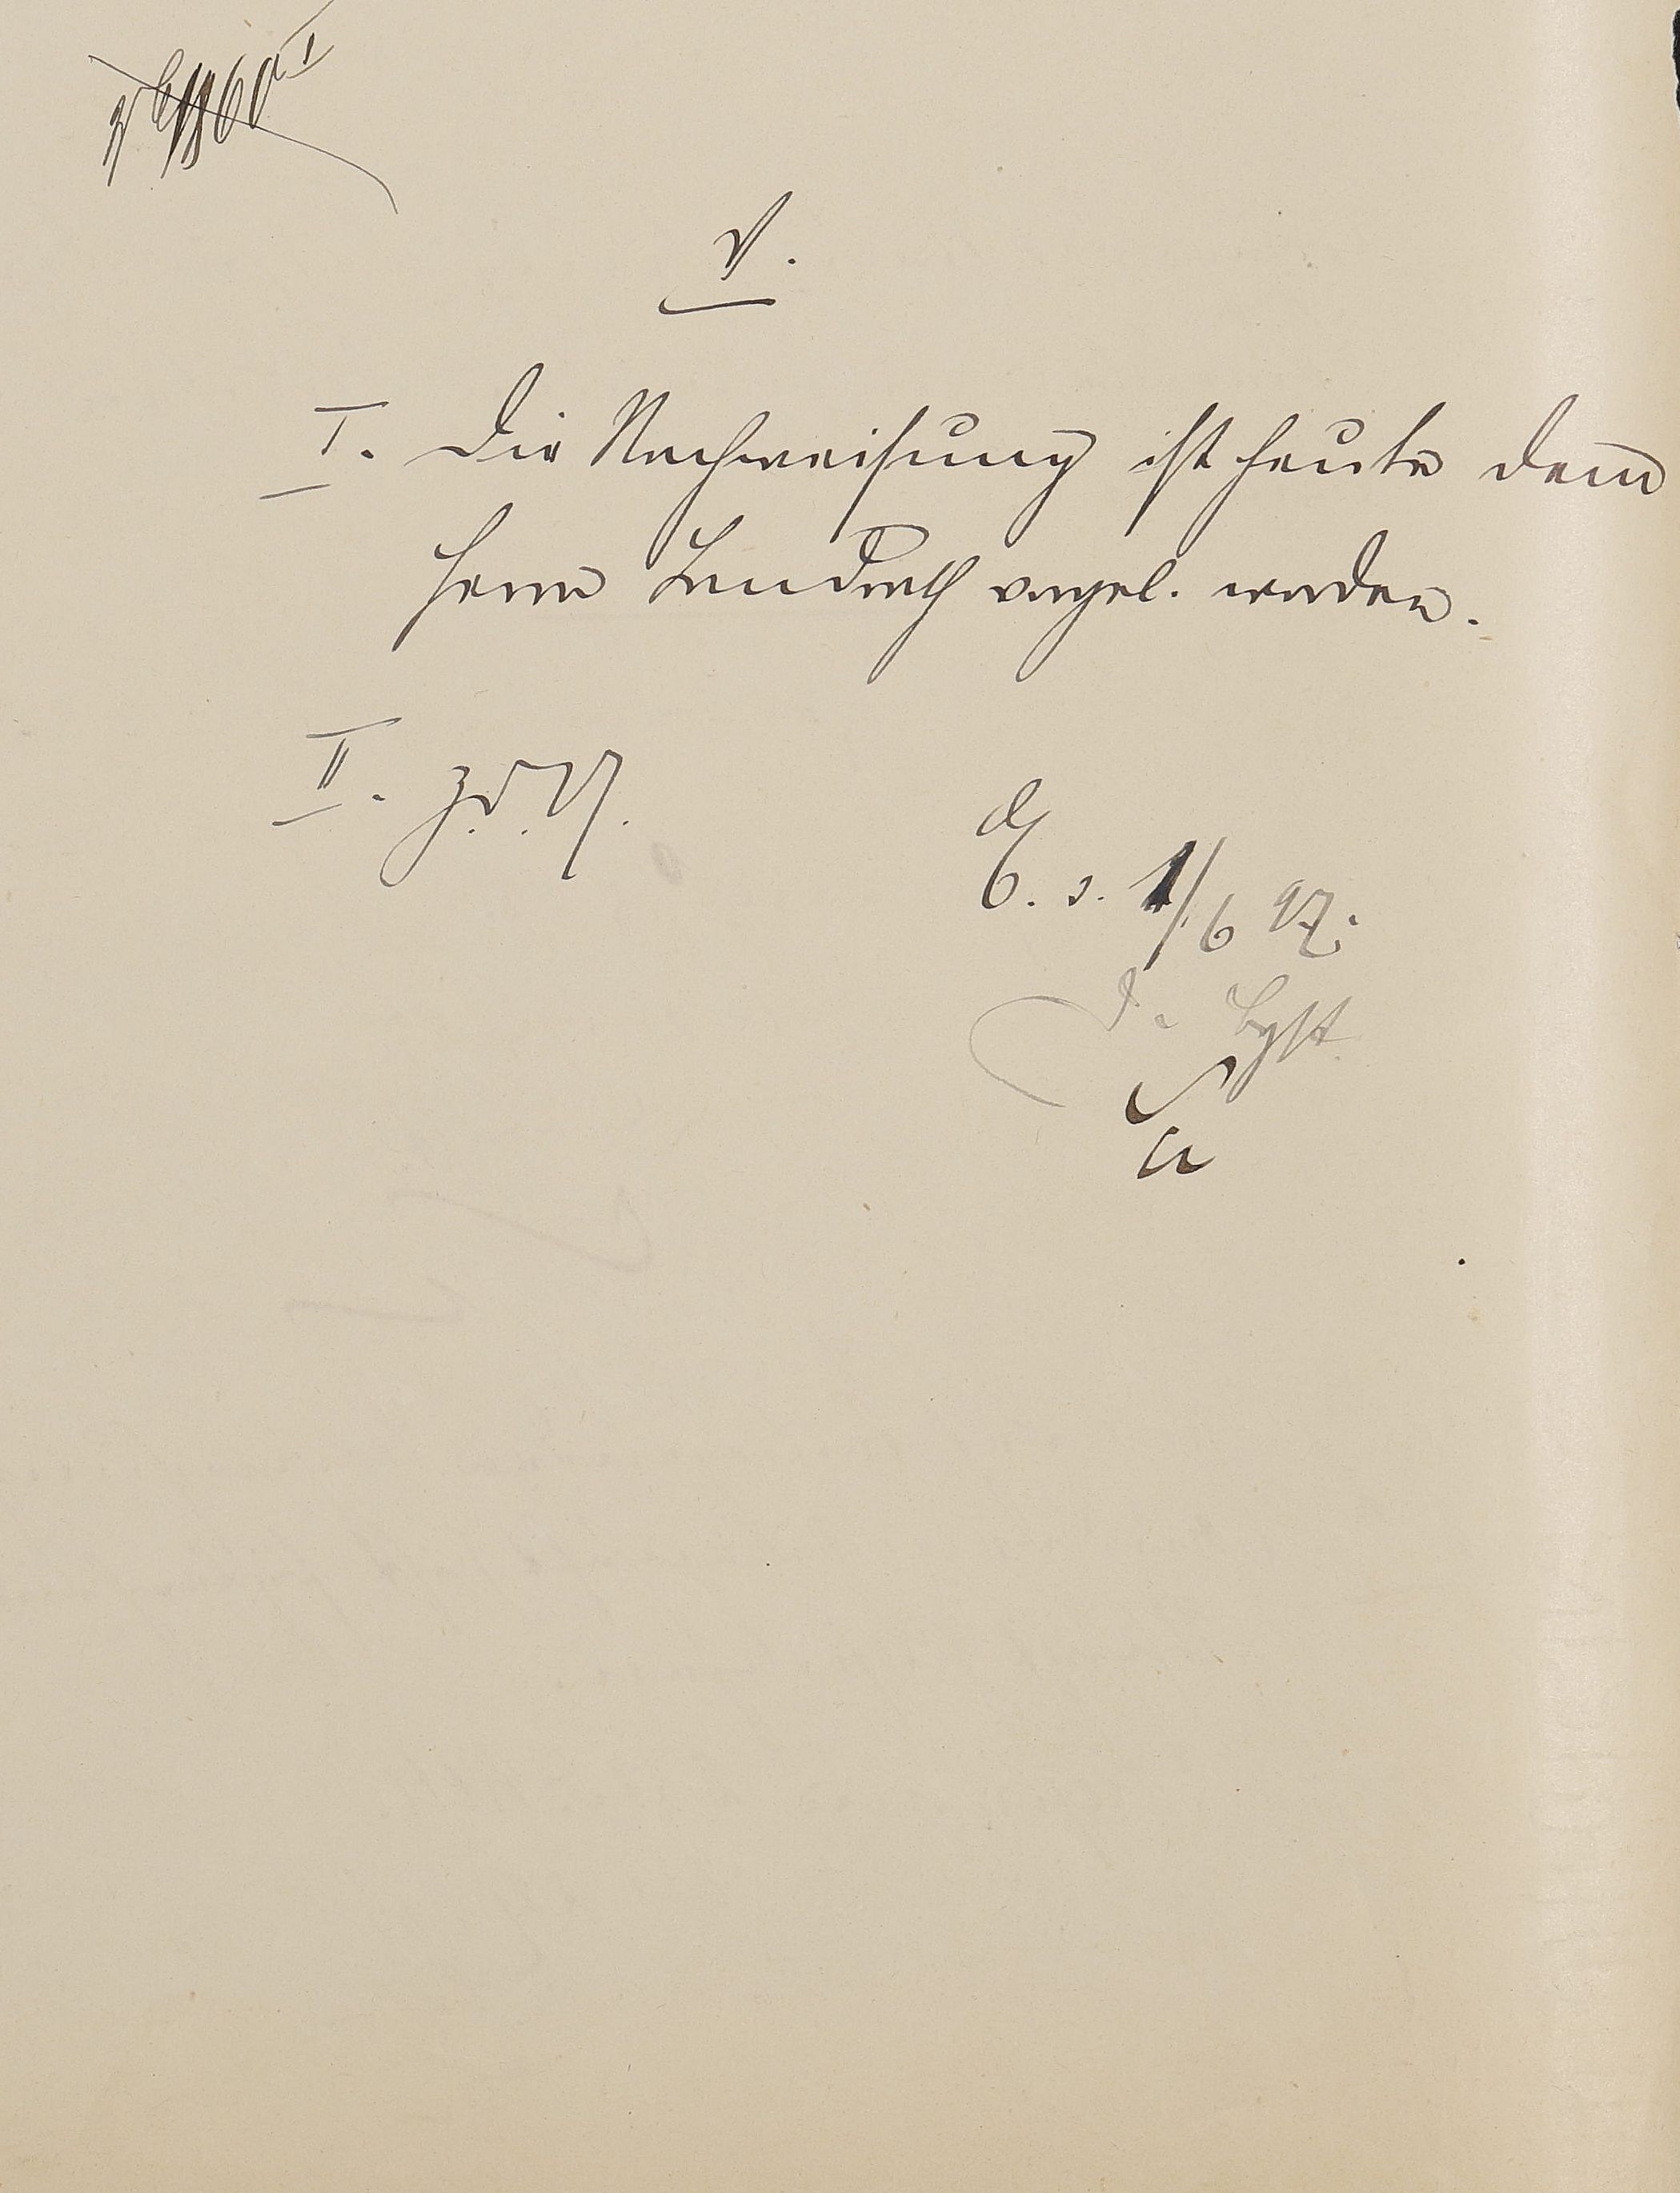 V.
I. Die Nachweisung ist heute dem
Herrn Landrath vorgel. worden.
II. z. d. A.
E. d. 1/6 97.